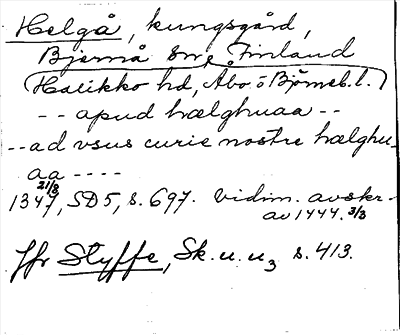 Helgå, kungsgård,
Bjernå sn, Finland
(Halikko hd, Åbo o Björneb. l.)
-- apud hælghuaa --
-- ad vsus curie nostre hælghu-
aa ----
1347 21/8, SD5, s. 697. Vidim. avskr.
av 1444. 3/3
Jfr Styffe, Sk. u. u3 s. 413.